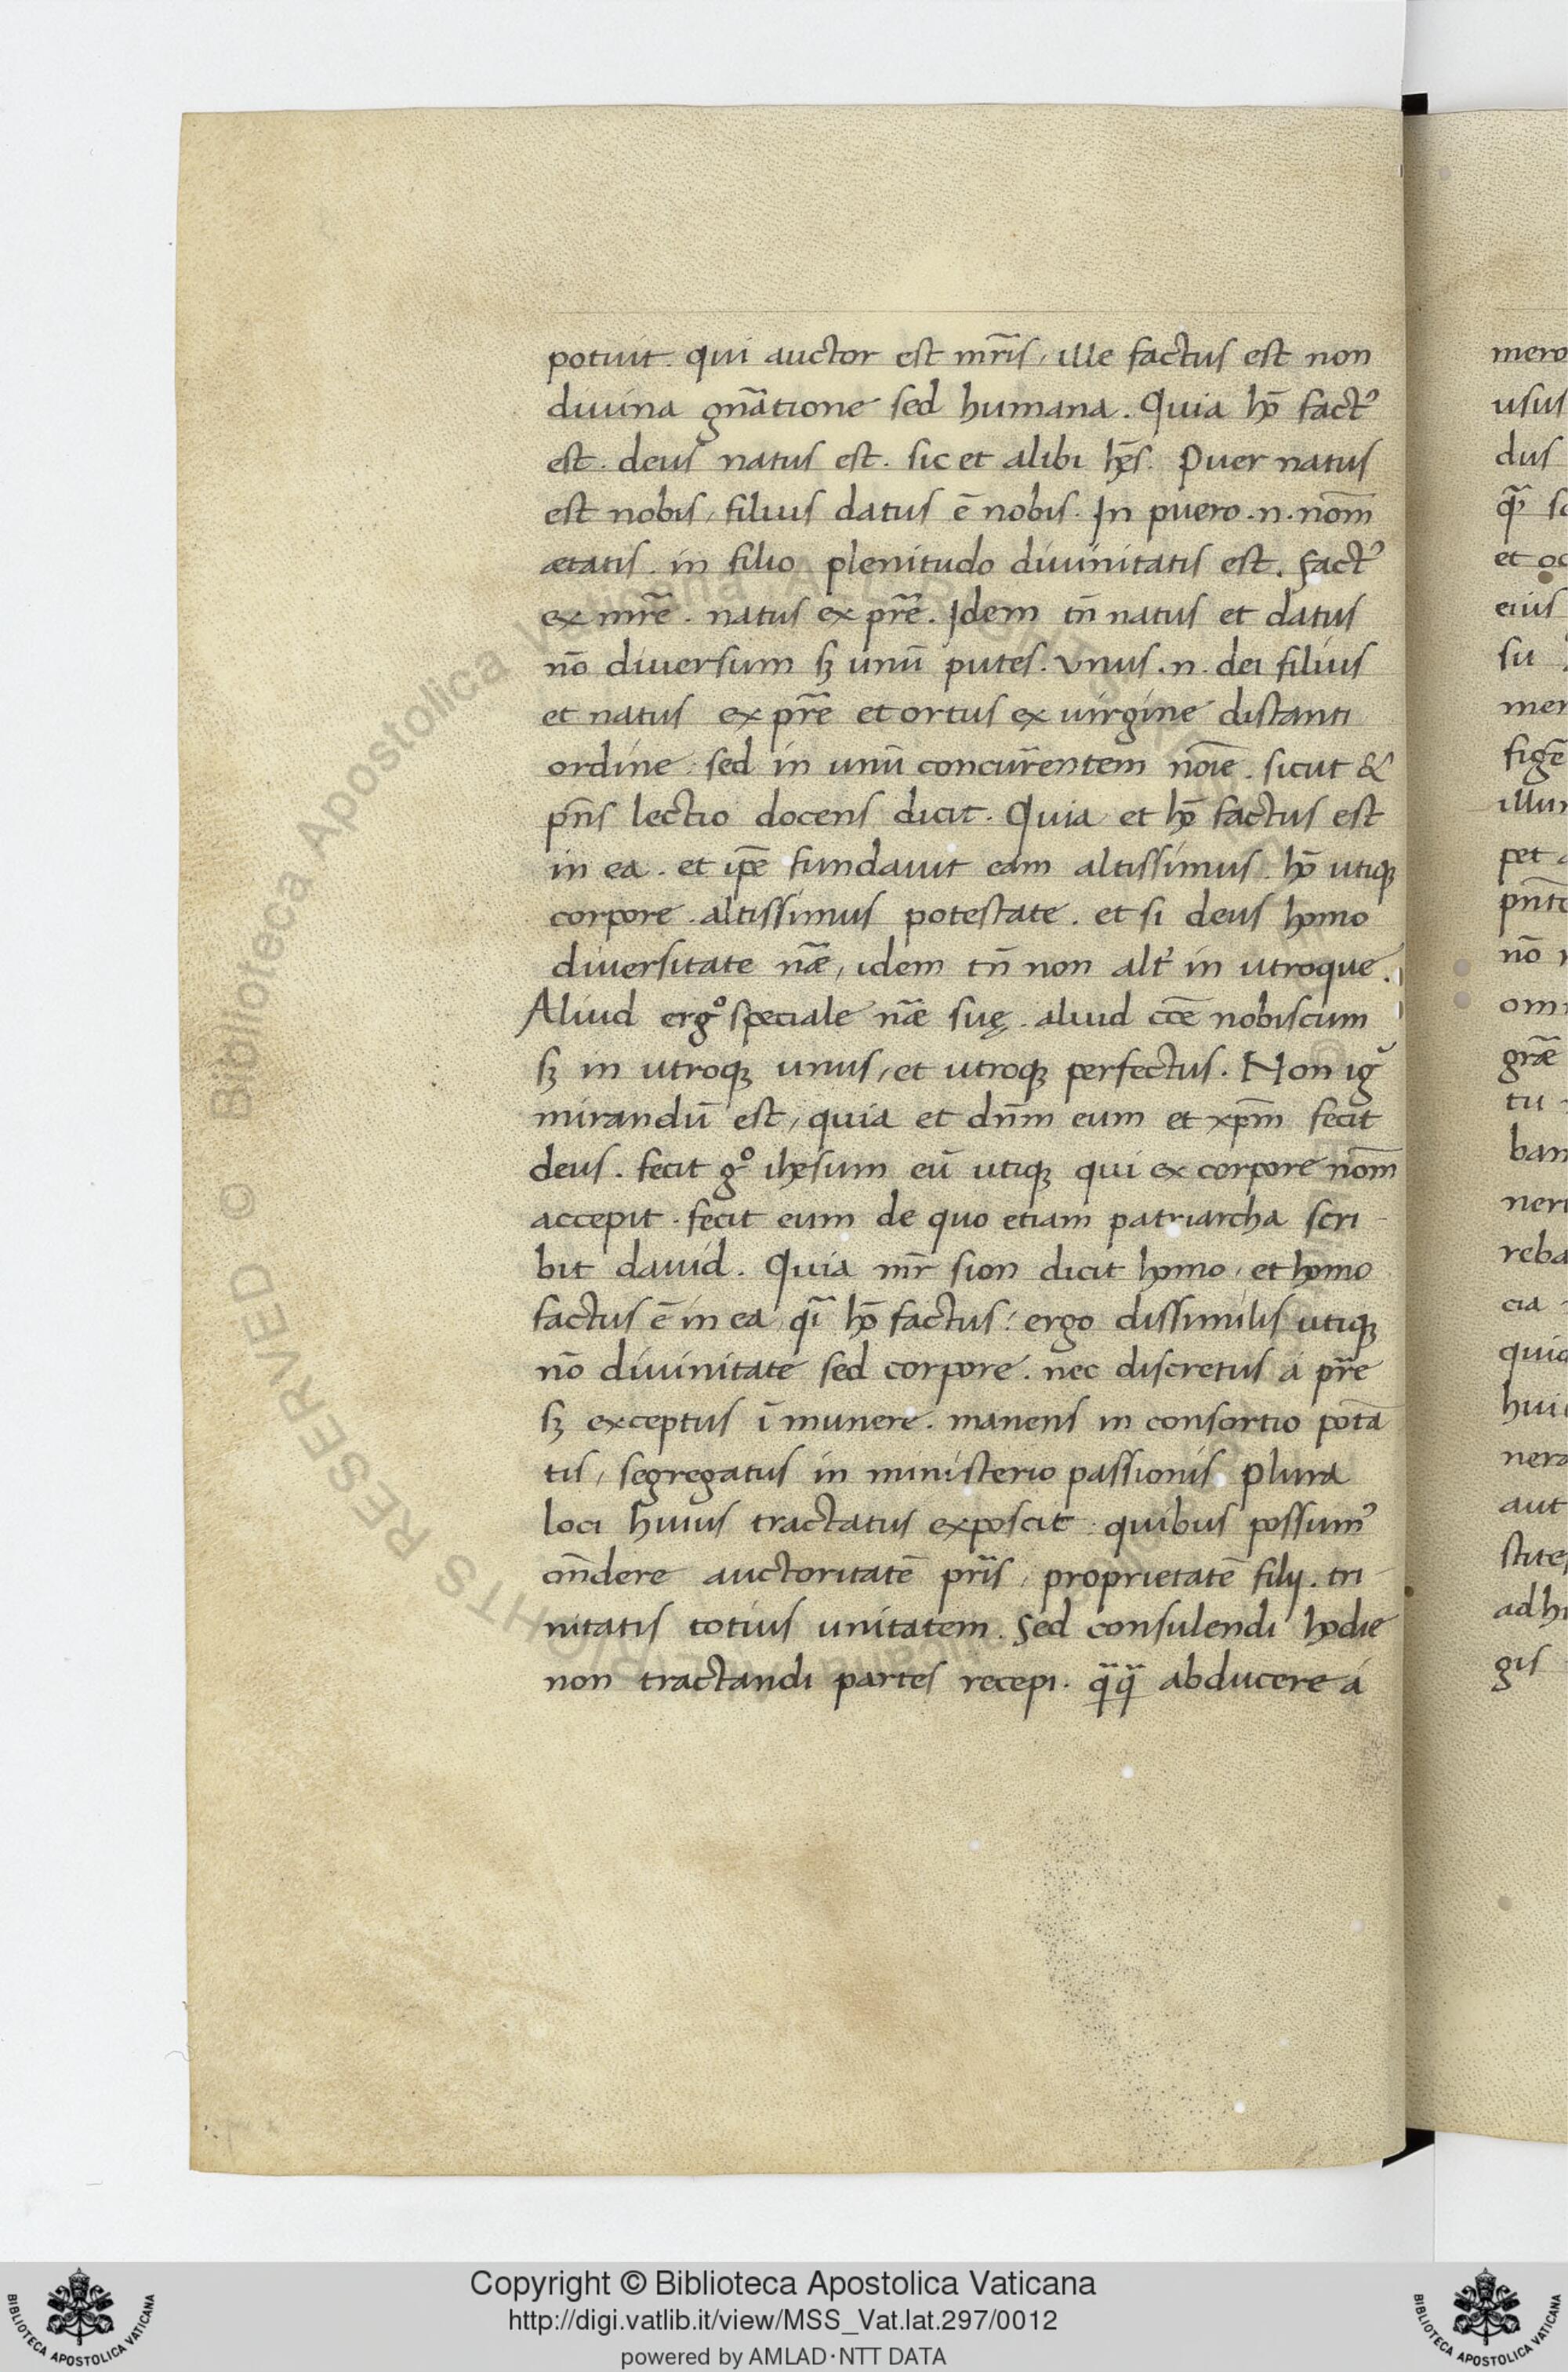 potuit. qui auctor est mr̃is, ille factus est non
diuina gnãtione sed humana. Quia hõ factꝰ
est. deus natus est. sic et alibi hẽs. Puer natus
est nobis, filius datus ẽ nobis. In puero .n. nom̃
ætatis. in filio plenitudo diuinitatis est. Factꝰ
ex mr̃e. natus ex pr̃e. Idem tñ natus et datus
nõ diuersum sꝫ unũ putes. Vnus .n. dei filius
et natus ex pr̃e et ortus ex uirgine distanti
ordine. sed in unũ concur̃entem noĩe. sicut &
pñs lectio docens dicit. Quia et hõ factus est
in ea. et ip̃e fundauit eam altissimus. hõ utiqꝫ
corpore. altissimus potestate. et si deus homo
diuersitate nãe, idem tñ non alt̃ in utroque.
Aliud ergº speciale nãe suę. aliud cõe nobiscum
sꝫ in utroqꝫ unus, et utroqꝫ perfectus. Non ig̃
mirandũ est, quia et dñm eum et xp̃m fecit
deus. fecit gº ihesum eũ utiqꝫ qui ex corpore nom̃
accepit. fecit eum de quo etiam patriarcha scri-
bit dauid. Quia mr̃ sion dicit homo, et homo
factus ẽ in ea, qĩ hõ factus: ergo dissimilis utiqꝫ
nõ diuinitate sed corpore. nec discretus á pr̃e
sꝫ exceptus ĩ munere. manens in consortio potã
tis, segregatus in ministerio passionis, Plura
loci huius tractatus exposcit: quibus possumꝰ
oñdere auctoritatẽ pr̃is, proprietatẽ filij. tri-
nitatis totius unitatem. Sed consulendi hodie
non tractandi partes recepi. q̃q̃ abducere á
mero
usus
dus
et oc
eius
su
mer
figẽ
illun
pet
nõ
om
græ
tu
ban
neri
reba
cia
quia
hui
nera
aut
stite
ad hu
gis
© Biblioteca Apostolica Vaticana
Copyright © Biblioteca Apostolica Vaticana
http://digi.vatlib.it/view/MSS_Vat.lat.297/0012
powered by AMLAD·NTT DATA
BIBLIOTECA APOSTOLICA VATICANA
BIBLIOTECA APOSTOLICA VATICANA